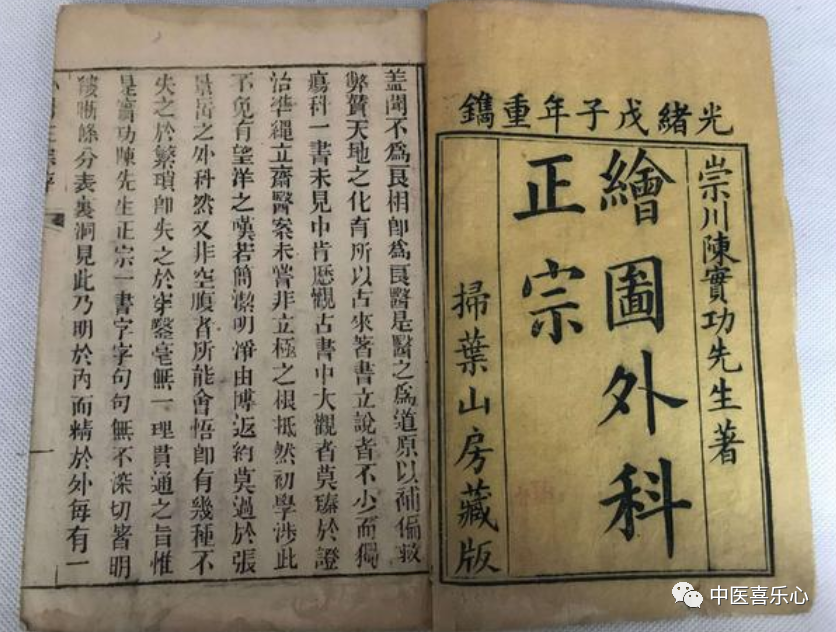 光緒戊子年重鐫
崇川陳實功先生著
繪圖外科
正宗
掃葉山房藏版
蓋聞不爲良相卽爲良醫是醫之爲道原以補偏救
弊贊天地之化育所以古來著書立說者不少而獨
瘍科一書未見中肯歷觀古書中大觀者莫臻於證
治準繩立齋醫案未嘗非立極之根抵然初學涉此
不免有望洋之嘆若簡潔明淨由博返約莫過於張
景岳之外科然又非空腹者所能會悟卽有幾種不
失之於繁瑣卽失之於穿鑿毫無一理貫通之旨惟
是實功陳先生正宗一書字字句句無不深切著明
縷晰條分表裏洞見此乃明於內而精於外每有一
一
中医喜乐心